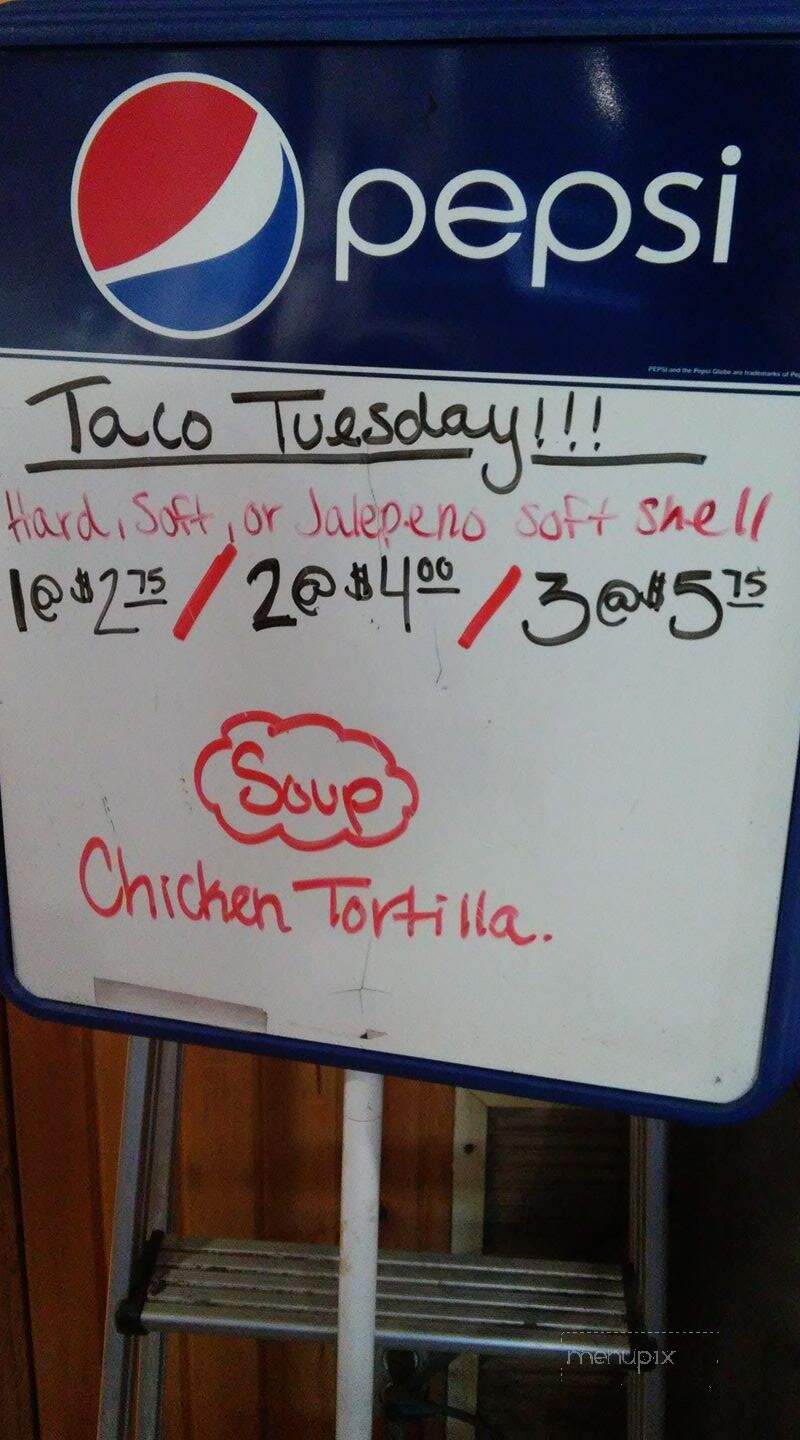 pepsi
PEPSI and the Pepsi Globe are trademarks of
Taco Tuesday!!!
Hard, Soft, or Jalepeno soft shell
1@$2.75 / 2@$4.00 / 3@$5.75
Soup
Chicken Tortilla.
menupix